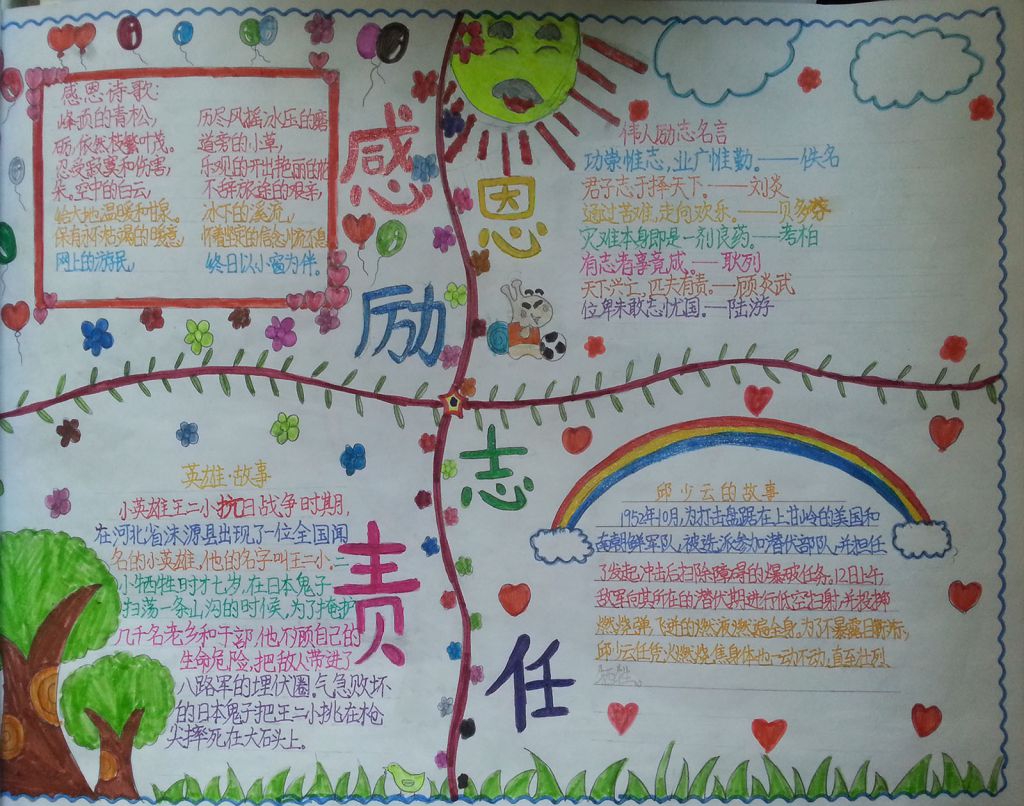 感恩诗歌:
峰顶的青松,
历尽风摇冰压的磨
砺,依然枝繁叶茂。
道旁的小草,
忍受寂寞和伤害,
乐观的开出艳丽的花
朵。空中的白云,
不辞旅途的艰辛,
给大地温暖和甘泉。
冰下的溪流,
保有永不枯竭的暖意,
怀着坚定的信念川流不息
网上的游民,
终日以小窗为伴。
感
恩
励
志
责
任
伟人励志名言
功崇惟志,业广惟勤。——佚名
君子志于择天下。——刘炎
通过苦难,走向欢乐。——贝多芬
灾难本身即是一剂良药。——考柏
有志者事竟成。—耿列
天下兴亡,匹夫有责。—顾炎武
位卑未敢忘忧国。—陆游
英雄·故事
小英雄王二小抗日战争时期,
在河北省涞源县出现了一位全国闻
名的小英雄,他的名字叫王二小。二
小牺牲时才七岁,在日本鬼子
扫荡一条山沟的时候,为了掩护
几千名老乡和干部,他不顾自己的
生命危险,把敌人带进了
八路军的埋伏圈。气急败坏
的日本鬼子把王二小挑在枪
尖摔死在大石头上。
邱少云的故事
1952年10月,为打击盘踞在上甘岭的美国和
南朝鲜军队,被选派参加潜伏部队,并担任
了发起冲击后扫除障碍的爆破任务。12日上午,
敌军向其所在的潜伏期进行低空扫射,并投掷
燃烧弹,飞进的燃液燃遍全身,为了不暴露目标,
邱少云任凭火燃烧焦身体也一动不动,直至壮烈
牺牲。